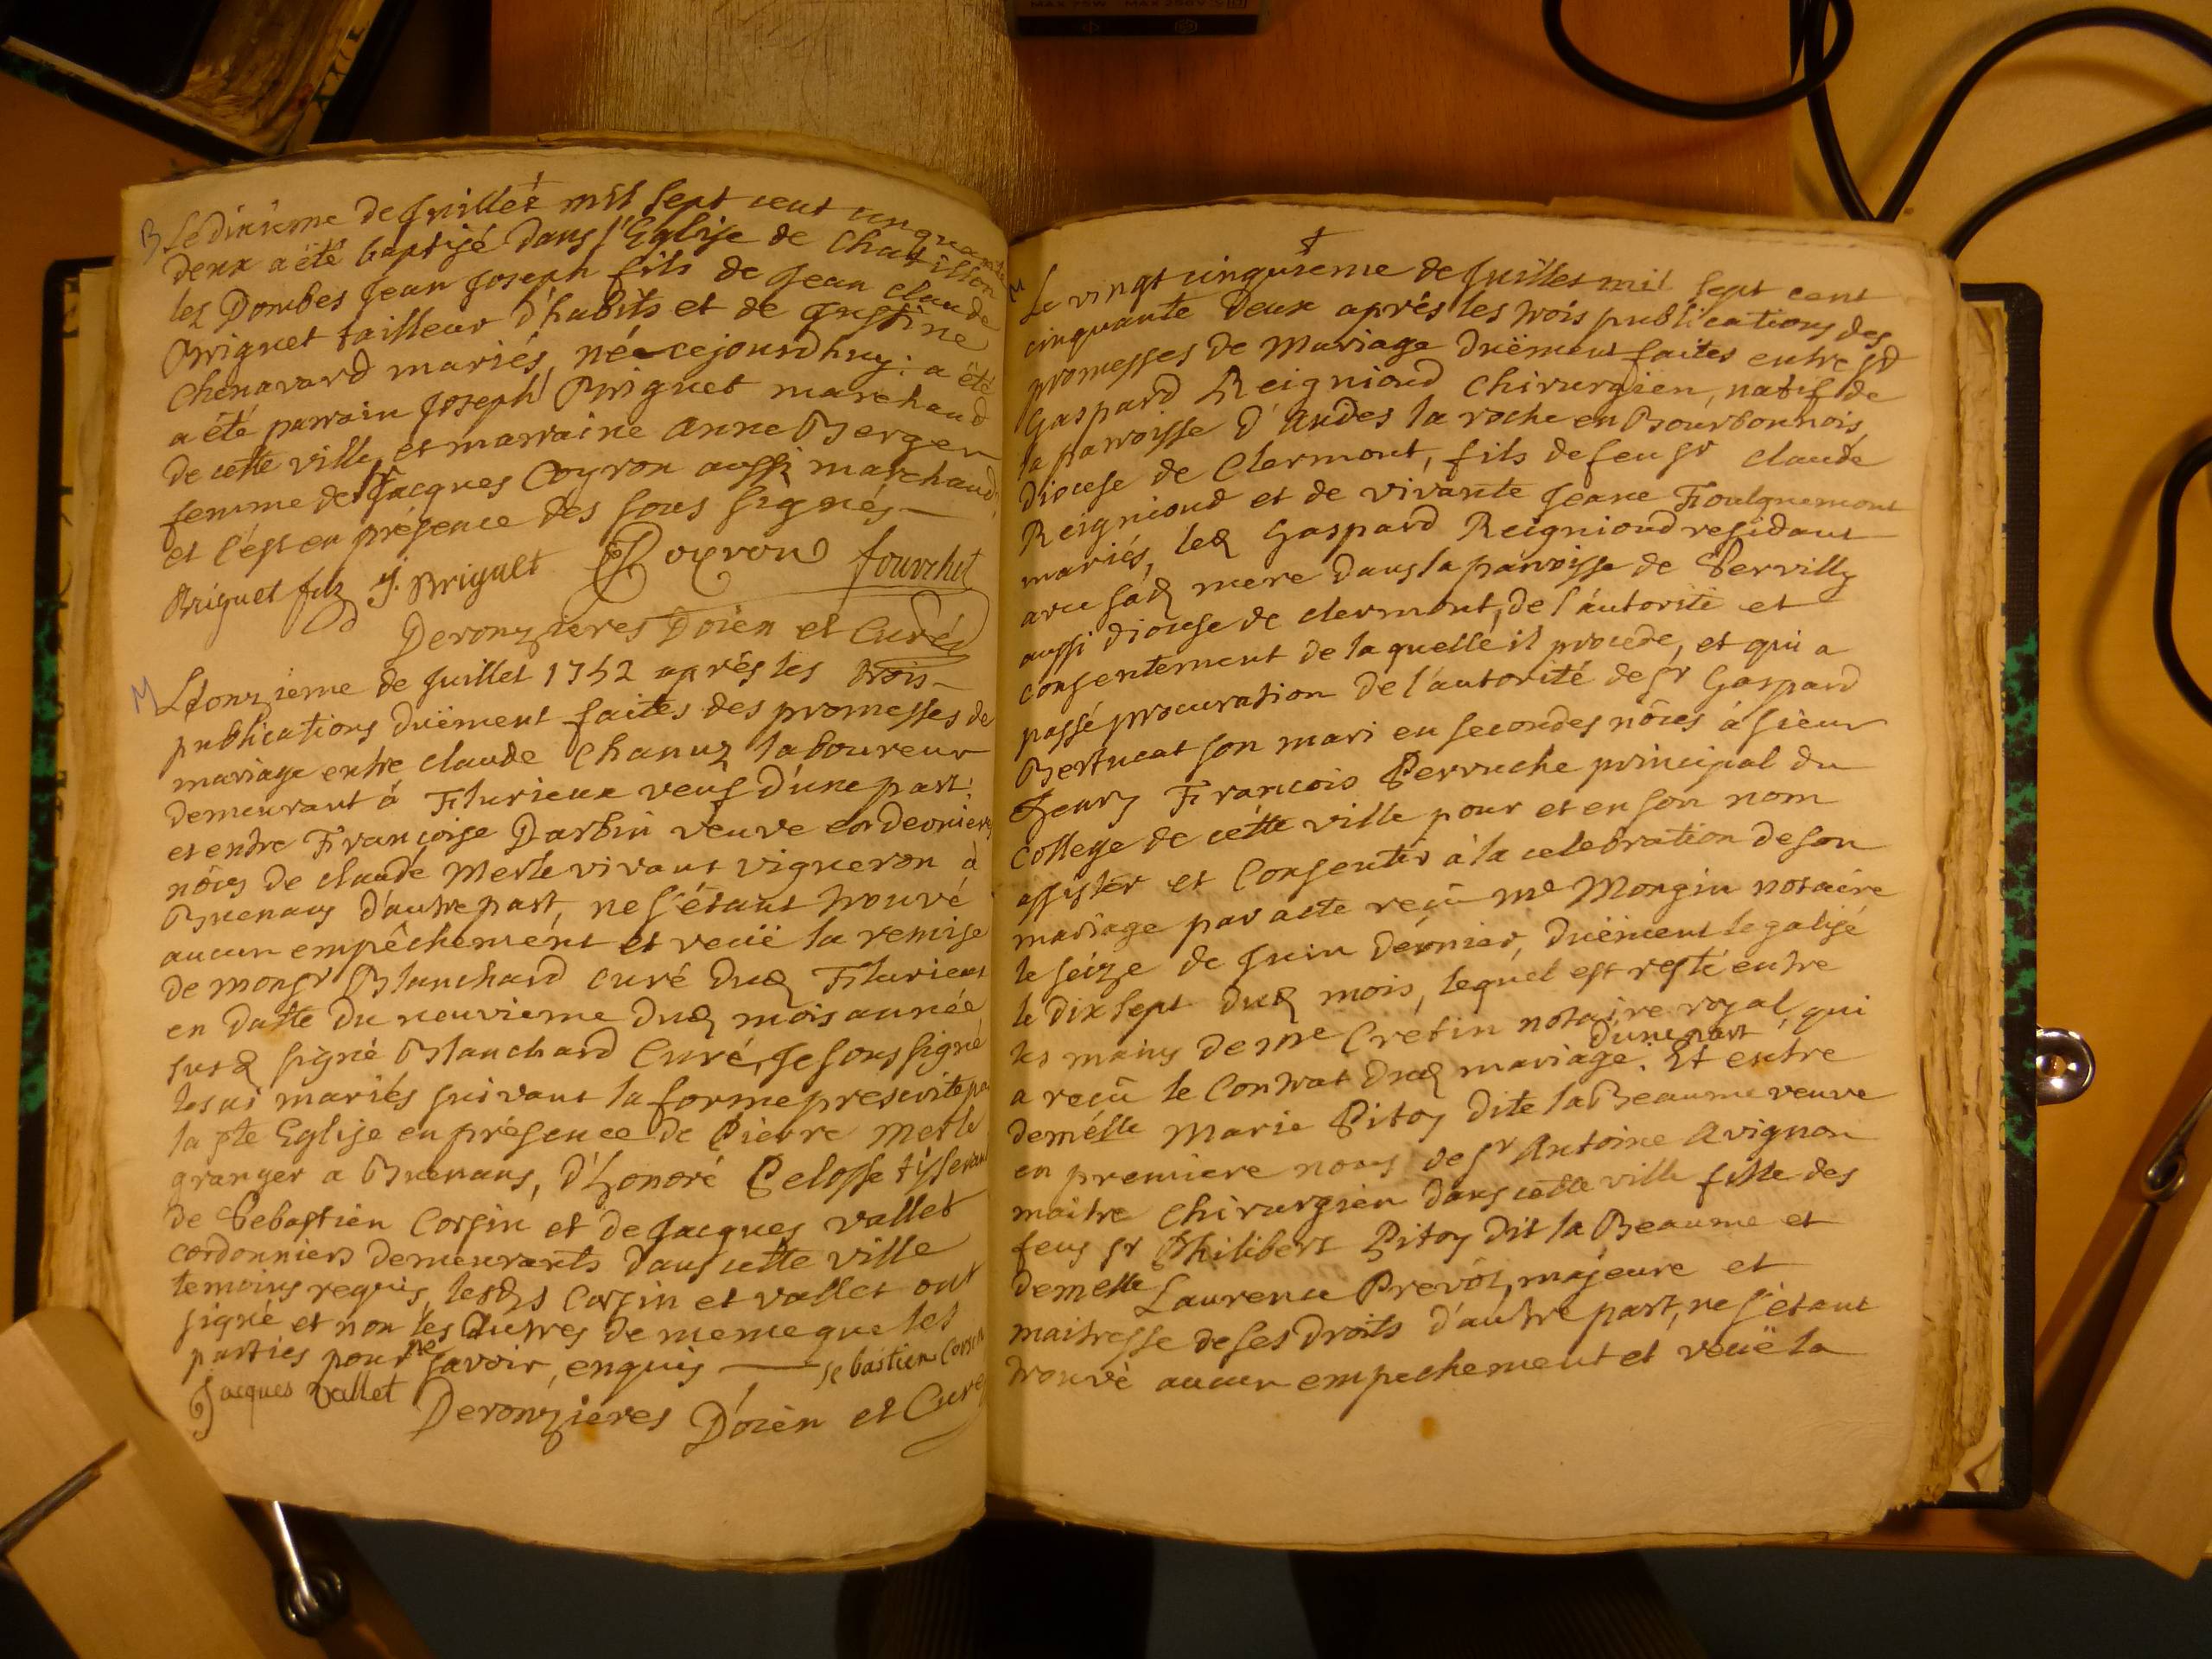 B Le dixieme de Juillet mil sept cent cinquante
deux a été baptisé dans l'Eglise de Chatillon
lez Dombes Jean Joseph fils de Jean claude
Briguet tailleur d'habits et de Justine
Chenavard mariés, né cejourdhuy: a été
a été parrain Joseph Briguet marchand
de cette ville, et marraine Anne Berger
femme de sr Jacques Coyron aussi marchand,
et c'est en présence des sous signés
Briguet fils J. Briguet Coyron fourchet
Deronzieres Doien et Curé
M Le onzieme de Juillet 1752 après les trois
publications duëment faites des promesses de
mariage entre claude Chanuz laboureur
demeurant à Flurieux veuf d'une part:
et entre Françoise Darbin veuve en dernieres
nôces de claude Merle vivant vigneron à
Buenans d'autre part, ne s'étant trouvé
aucun empêchement et veüe la remise
de monsr Blanchard curé dud Flurieux
en datte du neuvieme dud mois année
susd signé Blanchard Curé, Je soussigné
les ai mariés suivant la forme prescrite par
la ste Eglise en présence de Pierre Merle
granger a Buenans, d'honoré Pelosse tisserand
de Sebastien Corsin et de Jacques vallet
cordonniers demeurants dans cette ville
temoins requis, lesds Corsin et vallet ont
signé et non les autres de meme que les
parties pour ne savoir, enquis — sebastien Corsin
Jacques vallet
Deronzieres Doien et Curé
M Le vingt cinquieme de Juillet mil sept cent
cinquante deux après les trois publications des
promesses de Mariage duëment faites entre sr
Gaspard Reignioud Chirurgien, natif de
la parroisse d'Andes la roche en Bourbonnois,
diocese de Clermont, fils de feu sr claude
Reignioud et de vivante Jeane Foulquemont
mariés, led Gaspard Reignioud residant
avec sad mere dans la parroisse de Servilly
aussi diocese de clermont, de l'autorité et
consentement de la quelle il procede, et qui a
passé procuration de l'autorité de sr Gaspard
Bertucat son mari en secondes nôces à sieur
henry François Perruche principal du
College de cette ville pour et en son nom
assister et Consentir à la celebration de son
mariage par acte reçû me Mongin notaire
le seize de Juin dernier, duëment legalisé
le dix sept dud mois, lequel est resté entre
les mains de me Crétin notaire royal, qui
a reçû le Contrat dud mariage. d'une part Et entre
demelle Marie Pitoy dite la Beaume veuve
en premiere noces de sr Antoine Avignon
maitre chirurgien dans cette ville fille des
feus sr Philibert Pitoy dit la Beaume et
demelle Laurence Prevôt, majeure et
maitresse de ses droits d'autre part, ne s'étant
trouvé aucun empechement et veüe la